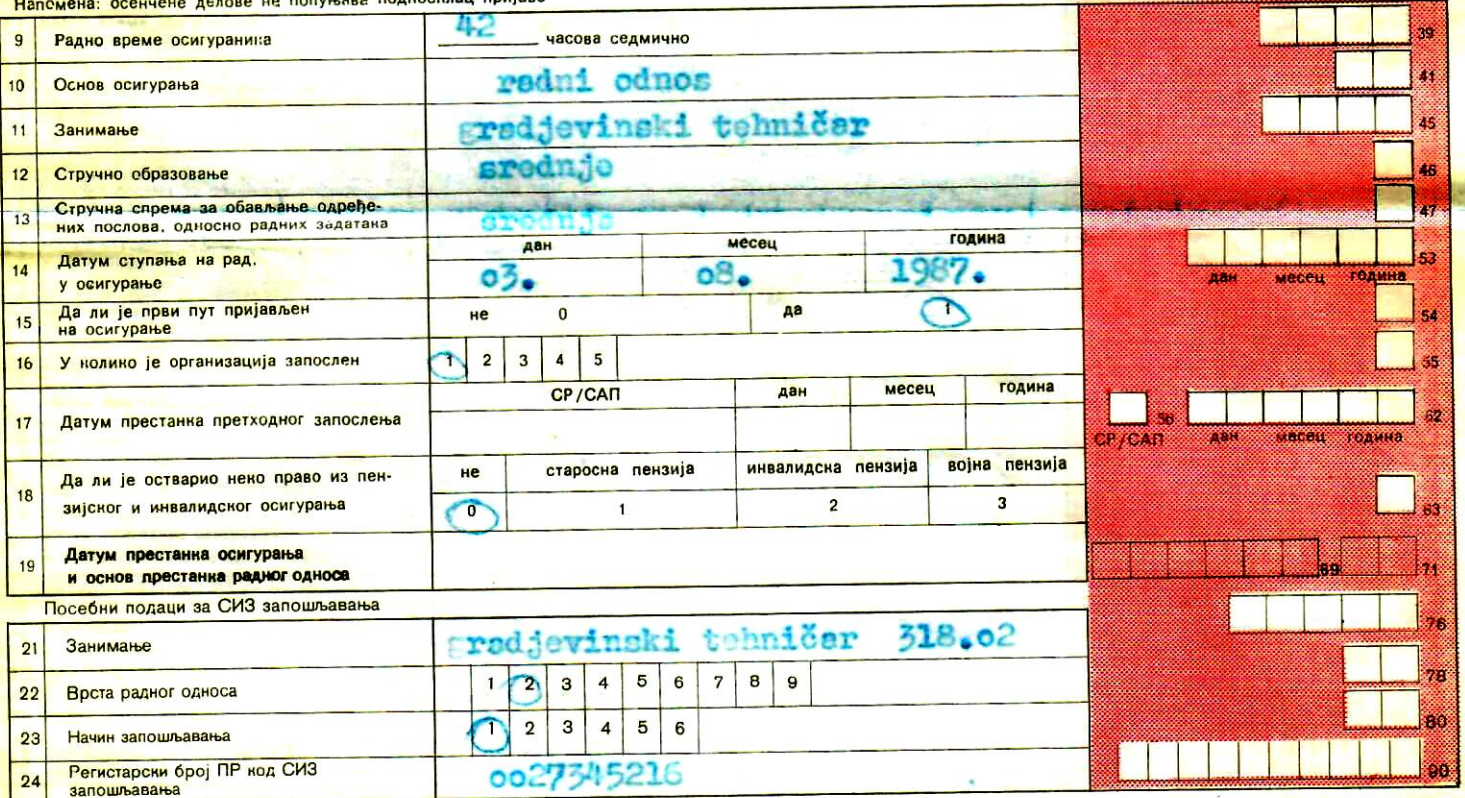 Напомена: осенчене делове не попуњава подносилац пријаве
9 Радно време осигураника 42 часова седмично 39
10 Основ осигурања radni odnos 41
11 Занимање gradjevinski tehničar 45
12 Стручно образовање srednje 46
13 Стручна спрема за обављање одређе-
них послова, односно радних задатака srednje 47
дан месец година
14 Датум ступања на рад,
у осигурање 03. 08. 1987. 53
дан месец година
15 Да ли је први пут пријављен
на осигурање не 0 да 1 54
16 У колико је организација запослен 1 2 3 4 5 55
СР/САП дан месец година
17 Датум престанка претходног запослења 56 62
СР/САП дан месец година
18 Да ли је остварио неко право из пен-
зијског и инвалидског осигурања
не старосна пензија инвалидска пензија војна пензија
0 1 2 3 63
19 Датум престанка осигурања
и основ престанка радног односа 69 71
Посебни подаци за СИЗ запошљавања
21 Занимање gradjevinski tehničar 318.02 76
22 Врста радног односа 1 2 3 4 5 6 7 8 9 78
23 Начин запошљавања 1 2 3 4 5 6 80
24 Регистарски број ПР код СИЗ
запошљавања 0027345216 90